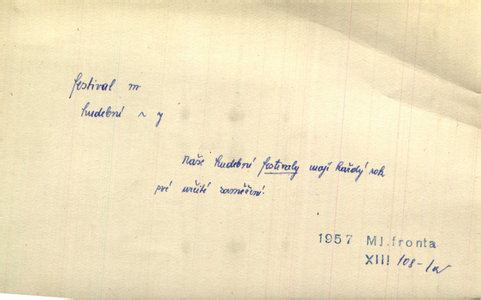 festival m
hudební ~ y
Naše hudební festivaly mají každý rok
své určité zaměření.
1957 Ml. fronta
XIII 108-1a